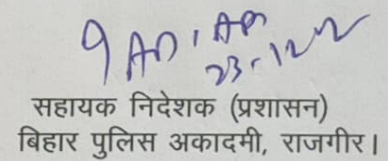 23-12-22
सहायक निदेशक (प्रशासन)
बिहार पुलिस अकादमी, राजगीर।